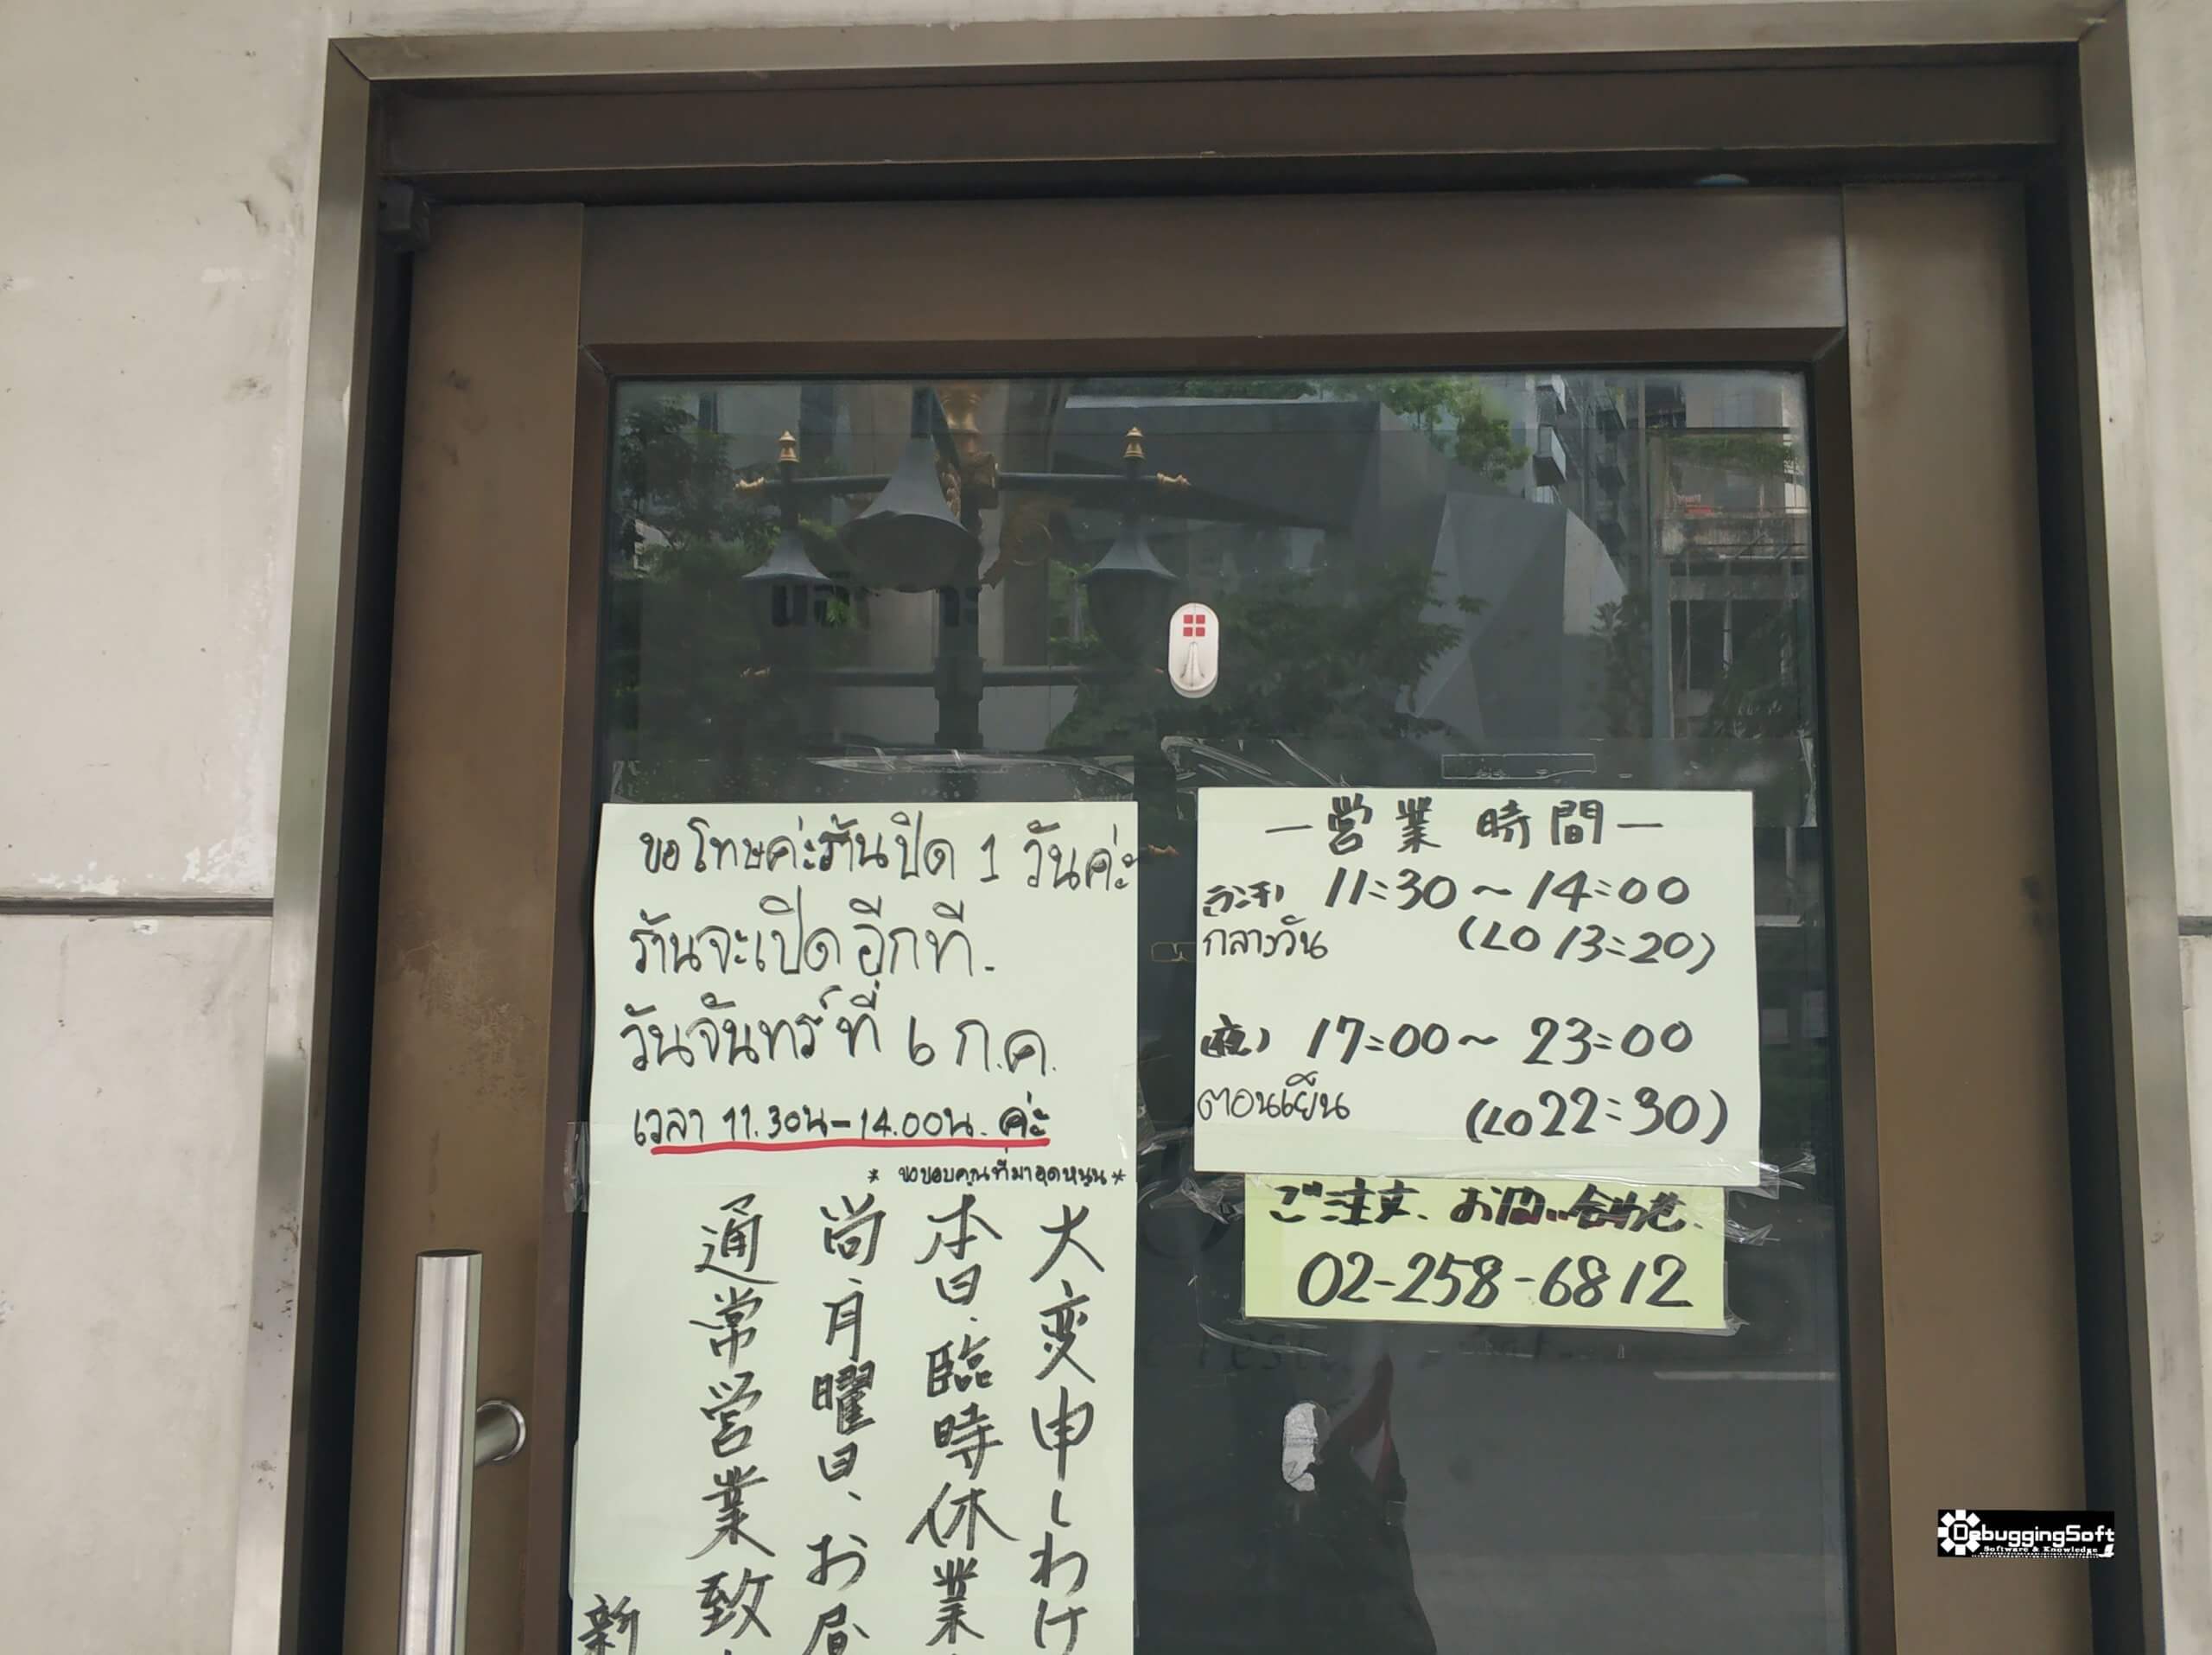 ขอโทษค่ะร้านปิด 1 วันค่ะ
ร้านจะเปิดอีกที.
วันจันทร์ที่ 6 ก.ค.
เวลา 11.30น-14.00น. ค่ะ
* ขอขอบคุณที่มาอุดหนุน *
大変申しわけ
本日、臨時休業
尚、月曜日、お昼
通常営業致
新
―営業時間―
11:30～14:00
กลางวัน (LO 13:20)
(夜) 17:00～23:00
ตอนเย็น (LO 22:30)
ご注文、お問い合わせ、
02-258-6812
DebuggingSoft
Software & Knowledge